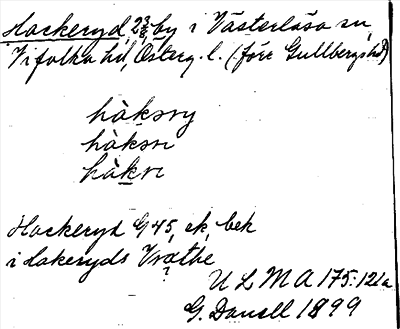 Hackeryd, 2 3/8, by i Västerlösa sn,
Vifolka hd, Österg. l. (förr Gullbergs hd)
hàksry
hàksri
hàkri
Hackeryd G 45, ek, bek
i Hakeryds
U L M A 175:121a
G. Danell 1899